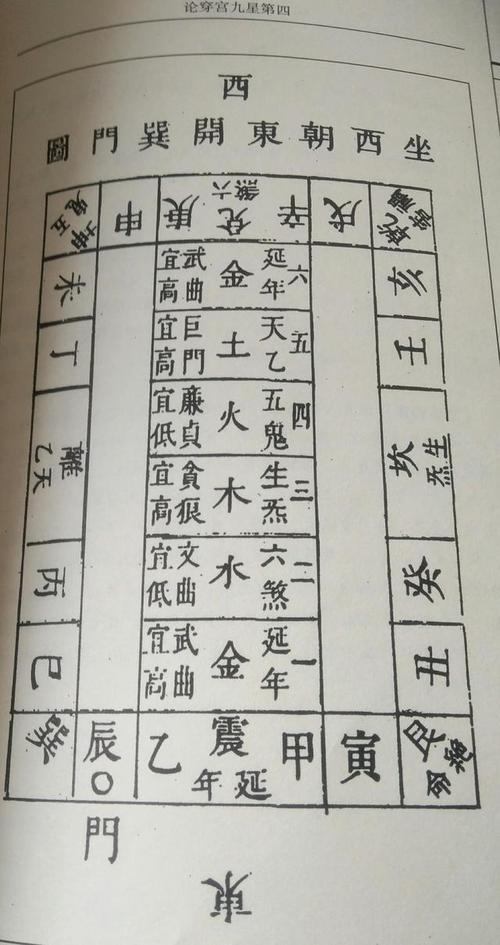 论穿宫九星第四
西
坐西朝東開巽門圖
乾禍害
戌
辛
兌六煞
庚
申
坤五鬼
亥
壬
坎生炁
癸
丑
六延年金武曲宜高
五天乙土巨門宜高
四五鬼火廉貞宜低
三生炁木貪狼宜高
二六煞水文曲宜低
一延年金武曲宜高
未
丁
離天乙
丙
巳
艮絕命
寅
甲
震延年
乙
辰○
巽
門
東